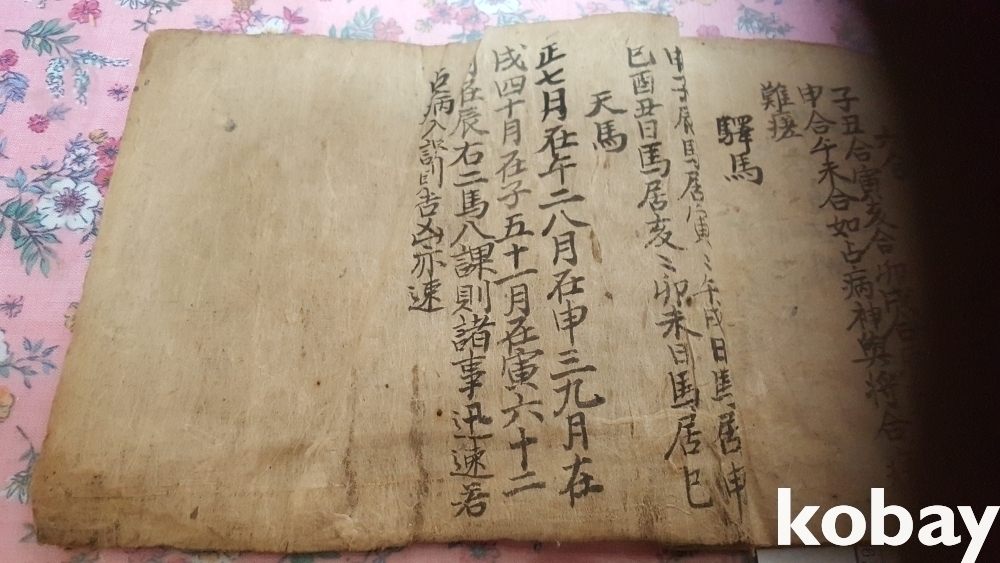 六合
子丑合寅亥合卯戌合
申合午未合如占病神與將合
難瘥
驛馬
申子辰日馬居寅〻午戌日馬居申
巳酉丑日馬居亥〻卯未日馬居巳
天馬
正七月在午二八月在申三九月在
戌四十月在子五十一月在寅六十二
月在辰右二馬入課則諸事迅速若
占病入課則吉凶亦速
kobay